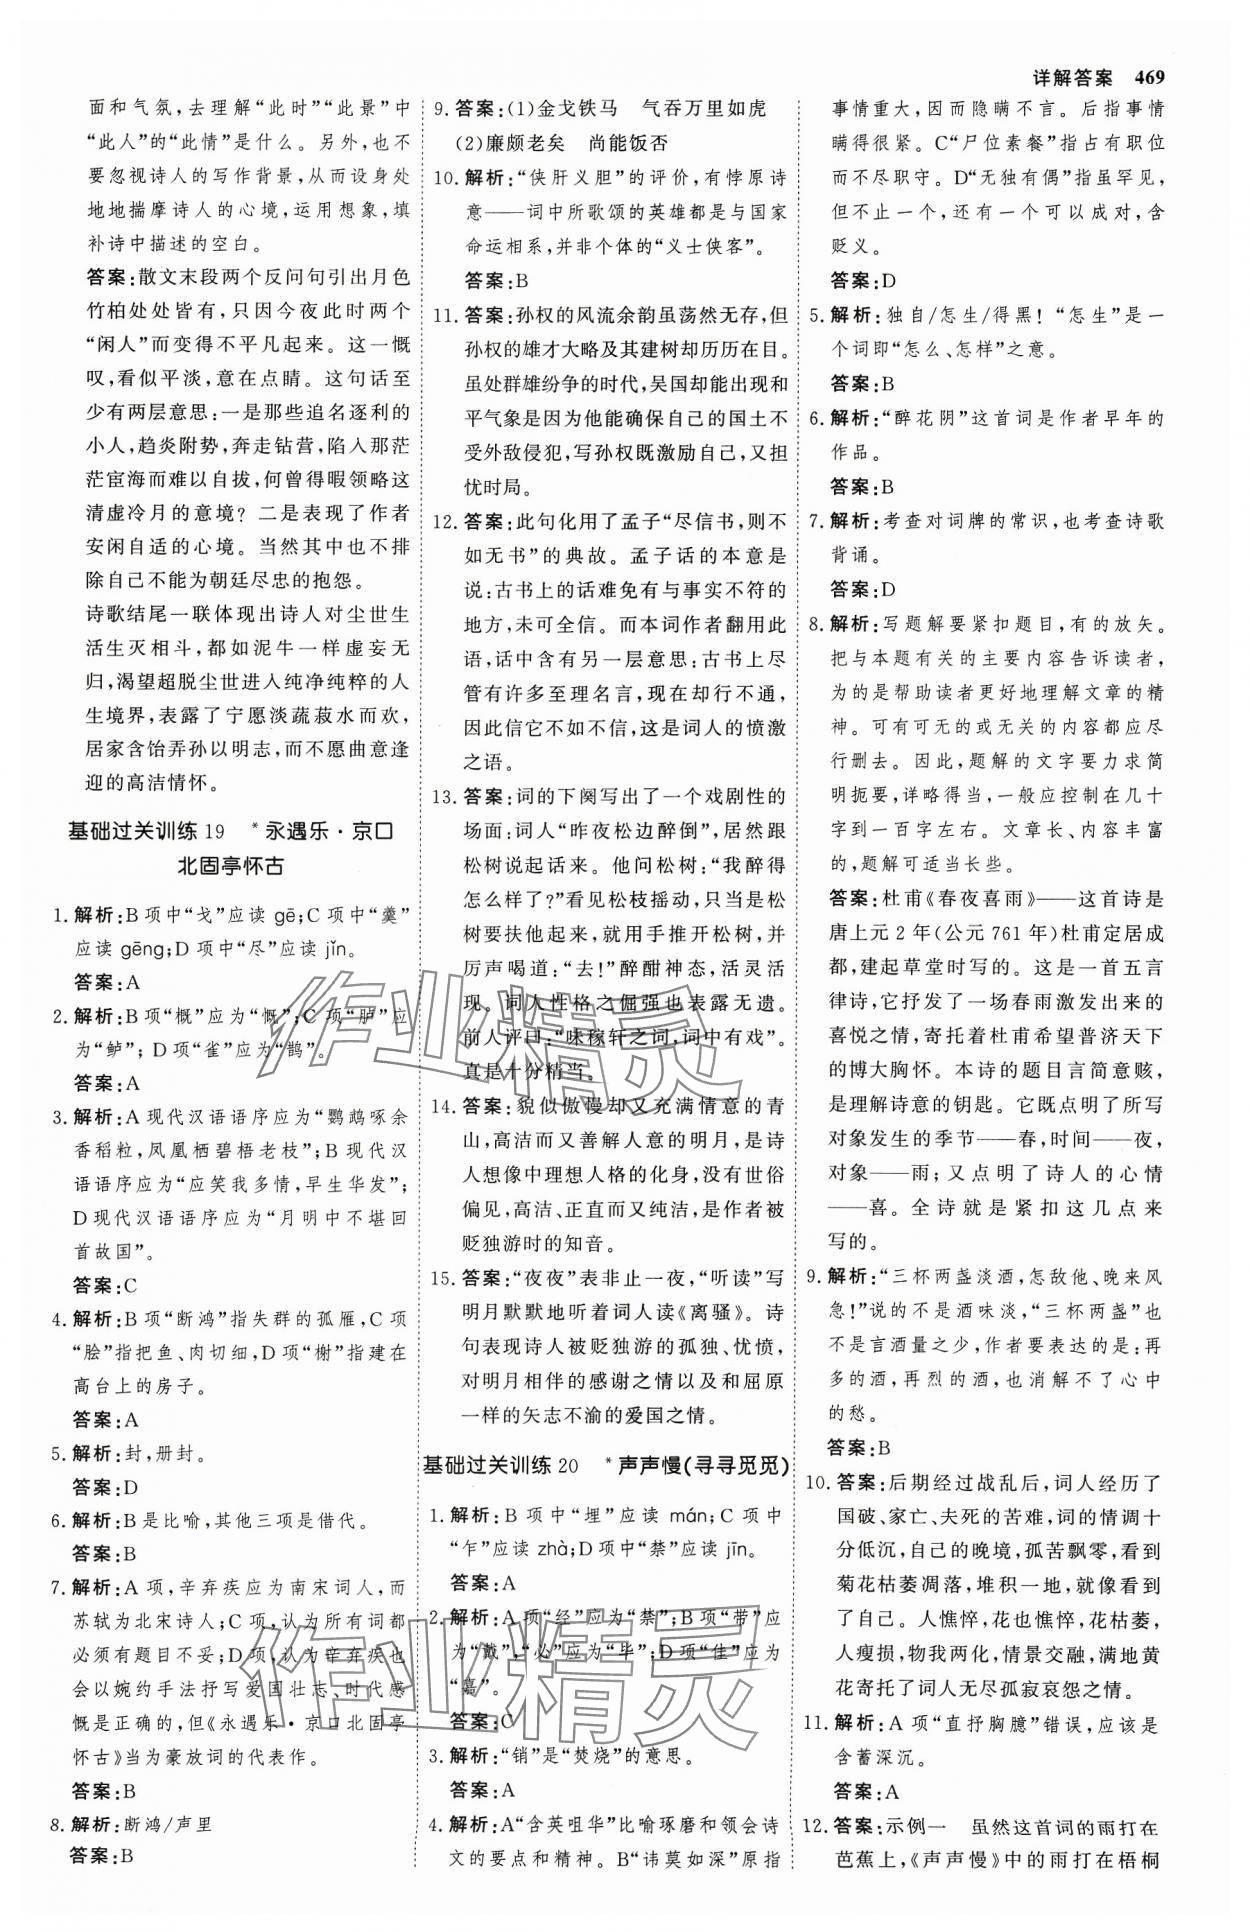 详解答案 469
面和气氛，去理解“此时”“此景”中
“此人”的“此情”是什么。另外，也不
要忽视诗人的写作背景，从而设身处
地地揣摩诗人的心境，运用想象，填
补诗中描述的空白。
答案:散文末段两个反问句引出月色
竹柏处处皆有，只因今夜此时此景的
“闲人”而变得不平凡起来。这一慨
叹，看似平淡，意在点睛。这句话至
少有两层意思:一是那些追名逐利的
小人，趋炎附势，奔走钻营，陷入那茫
茫宦海而难以自拔，何曾得暇领略这
清虚冷月的意境？二是表现了作者
安闲自适的心境。当然其中也不排
除自己不能为朝廷尽忠的抱怨。
诗歌结尾一联体现出诗人对尘世生
活生灭相斗，都如泥牛一样虚妄无
归，渴望超脱尘世进入纯净纯粹的人
生境界，表露了宁愿淡蔬菽水而欢，
居家含饴弄孙以明志，而不愿曲意逢
迎的高洁情怀。
基础过关训练 19 *永遇乐·京口
北固亭怀古
1. 解析:B项中“戈”应读 gē;C项中“羹”
应读 gēng;D项中“尽”应读 jǐn。
答案:A
2. 解析:B项“概”应为“慨”;C项“胪”应
为“鲈”;D项“雀”应为“鹊”。
答案:A
3. 解析:A 现代汉语语序应为“鹦鹉啄余
香稻粒，凤凰栖碧梧老枝”;B 现代汉
语语序应为“应笑我多情，早生华发”;
D现代汉语语序应为“月明中不堪回
首故国”。
答案:C
4. 解析:B项“断鸿”指失群的孤雁，C项
“脍”指把鱼、肉切细，D项“榭”指建在
高台上的房子。
答案:A
5. 解析:封，册封。
答案:D
6. 解析:B是比喻，其他三项是借代。
答案:B
7. 解析:A 项，辛弃疾应为南宋词人，而
苏轼为北宋诗人;C项，认为所有词都
必须有题目不妥;D项，认为辛弃疾也
会以婉约手法抒写爱国壮志、时代感
慨是正确的，但《永遇乐·京口北固亭
怀古》当为豪放词的代表作。
答案:B
8. 解析:断鸿/声里
答案:B
9. 答案:(1)金戈铁马 气吞万里如虎
(2)廉颇老矣 尚能饭否
10. 解析:“侠肝义胆”的评价，有悖原诗
意——词中所歌颂的英雄都是与国家
命运相系，并非个体的“义士侠客”。
答案:B
11. 答案:孙权的风流余韵虽荡然无存，但
孙权的雄才大略及其建树却历历在目。
虽处群雄纷争的时代，吴国却能出现和
平气象是因为他能确保自己的国土不
受外敌侵犯，写孙权既激励自己，又担
忧时局。
12. 答案:此句化用了孟子“尽信书，则不
如无书”的典故。孟子话的本意是
说:古书上的话难免有与事实不符的
地方，未可全信。而本词作者翻用此
语，话中含有另一层意思:古书上尽
管有许多至理名言，现在却行不通，
因此信它不如不信，这是词人的愤激
之语。
13. 答案:词的下阕写出了一个戏剧性的
场面:词人“昨夜松边醉倒”，居然跟
松树说起话来。他问松树:“我醉得
怎么样了？”看见松枝摇动，只当是松
树要扶他起来，就用手推开松树，并
厉声喝道:“去！”醉酣神态，活灵活
现。词人性格之倔强也表露无遗。
前人评曰:“味稼轩之词，词中有戏”。
真是十分精当。
14. 答案:貌似傲慢却又充满情意的青
山，高洁而又善解人意的明月，是诗
人想像中理想人格的化身，没有世俗
偏见，高洁、正直而又纯洁，是作者被
贬独游时的知音。
15. 答案:“夜夜”表非止一夜，“听读”写
明月默默地听着词人读《离骚》。诗
句表现诗人被贬独游的孤独、忧愤，
对明月相伴的感谢之情以及和屈原
一样的矢志不渝的爱国之情。
基础过关训练 20 *声声慢(寻寻觅觅)
1. 解析:B项中“埋”应读 mán;C项中
“乍”应读 zhà;D项中“禁”应读 jīn。
答案:A
2. 解析:A项“经”应为“禁”;B项“带”应
为“戴”，“必”应为“毕”;D项“佳”应为
“嘉”。
答案:C
3. 解析:“销”是“焚烧”的意思。
答案:A
4. 解析:A“含英咀华”比喻琢磨和领会诗
文的要点和精神。B“讳莫如深”原指
事情重大，因而隐瞒不言。后指事情
瞒得很紧。C“尸位素餐”指占有职位
而不尽职守。D“无独有偶”指虽罕见，
但不止一个，还有一个可以成对，含
贬义。
答案:D
5. 解析:独自/怎生/得黑！“怎生”是一
个词即“怎么、怎样”之意。
答案:B
6. 解析:“醉花阴”这首词是作者早年的
作品。
答案:B
7. 解析:考查对词牌的常识，也考查诗歌
背诵。
答案:D
8. 解析:写题解要紧扣题目，有的放矢。
把与本题有关的主要内容告诉读者，
为的是帮助读者更好地理解文章的精
神。可有可无的或无关的内容都应尽
行删去。因此，题解的文字要力求简
明扼要，详略得当，一般应控制在几十
字到一百字左右。文章长、内容丰富
的，题解可适当长些。
答案:杜甫《春夜喜雨》——这首诗是
唐上元 2 年(公元 761 年)杜甫定居成
都，建起草堂时写的。这是一首五言
律诗，它抒发了一场春雨激发出来的
喜悦之情，寄托着杜甫希望普济天下
的博大胸怀。本诗的题目言简意赅，
是理解诗意的钥匙。它既点明了所写
对象发生的季节——春，时间——夜，
对象——雨；又点明了诗人的心情
——喜。全诗就是紧扣这几点来
写的。
9. 解析:“三杯两盏淡酒，怎敌他、晚来风
急！”说的不是酒味淡，“三杯两盏”也
不是言酒量之少，作者要说的是:再
多的酒，再烈的酒，也消解不了心中
的愁。
答案:B
10. 答案:后期经过战乱后，词人经历了
国破、家亡、夫死的苦难，词的情调十
分低沉，自己的晚境，孤苦飘零，看到
菊花枯萎凋落，堆积一地，就像看到
了自己。人憔悴，花也憔悴，花枯萎，
人瘦损，物我两化，情景交融，满地黄
花寄托了词人无尽孤寂哀怨之情。
11. 解析:A 项“直抒胸臆”错误，应该是
含蓄深沉。
答案:A
12. 答案:示例一 虽然这首词的雨打在
芭蕉上，《声声慢》中的雨打在梧桐
作业精灵
作业精灵